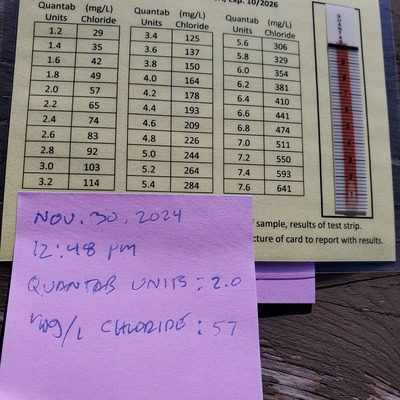 Exp. 10/2026
Quantab Units (mg/L) Chloride Quantab Units (mg/L) Chloride Quantab Units (mg/L) Chloride
1.2 29 3.4 125 5.6 306
1.4 35 3.6 137 5.8 329
1.6 42 3.8 150 6.0 354
1.8 49 4.0 164 6.2 381
2.0 57 4.2 178 6.4 410
2.2 65 4.4 193 6.6 441
2.4 74 4.6 209 6.8 474
2.6 83 4.8 226 7.0 511
2.8 92 5.0 244 7.2 550
3.0 103 5.2 264 7.4 593
3.2 114 5.4 284 7.6 641
QUANTAB
9
8
7
6
5
4
3
2
1
of sample, results of test strip.
cture of card to report with results.
NOV. 30, 2024
12:48 pm
QUANTAB UNITS = 2.0
mg/L CHLORIDE: 57